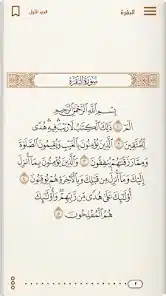 البقرة
الجزء الأول
سُورَةُ البَقَرَةِ
بِسْمِ اللَّهِ الرَّحْمَٰنِ الرَّحِيمِ
الٓمٓ ١ ذَٰلِكَ الْكِتَٰبُ لَا رَيْبَ ۛ فِيهِ ۛ هُدًى
لِّلْمُتَّقِينَ ٢ الَّذِينَ يُؤْمِنُونَ بِالْغَيْبِ وَيُقِيمُونَ الصَّلَوٰةَ
وَمِمَّا رَزَقْنَٰهُمْ يُنفِقُونَ ٣ وَالَّذِينَ يُؤْمِنُونَ بِمَا أُنزِلَ
إِلَيْكَ وَمَا أُنزِلَ مِن قَبْلِكَ وَبِالْآخِرَةِ هُمْ يُوقِنُونَ ٤
أُولَٰئِكَ عَلَىٰ هُدًى مِّن رَّبِّهِمْ ۖ وَأُولَٰئِكَ
هُمُ الْمُفْلِحُونَ ٥
٢